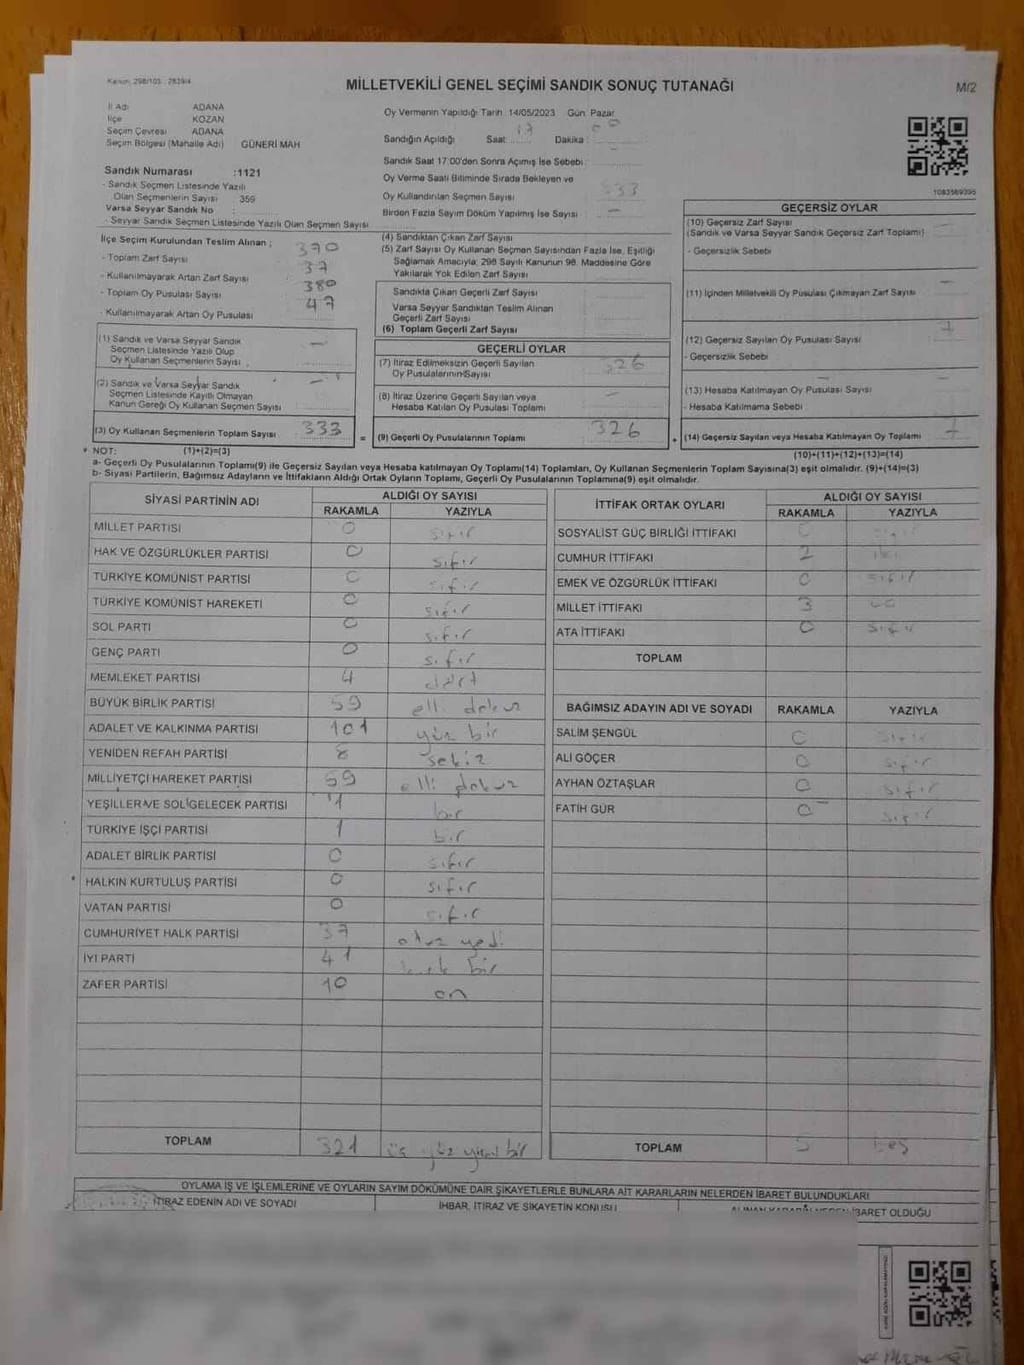 Kanun: 298/103 - 2839/4
MİLLETVEKİLİ GENEL SEÇİMİ SANDIK SONUÇ TUTANAĞI
M/2
İl Adı ADANA
İlçe KOZAN
Seçim Çevresi ADANA
Seçim Bölgesi (Mahalle Adı) GÜNERİ MAH
Oy Vermenin Yapıldığı Tarih 14/05/2023 Gün: Pazar
Sandığın Açıldığı Saat: 17 Dakika: 00
Sandık Saat 17:00'den Sonra Açımış İse Sebebi:
Oy Verme Saati Bitiminde Sırada Bekleyen ve
Oy Kullandırılan Seçmen Sayısı 333
Birden Fazla Sayım Döküm Yapılmış İse Sayısı —
Sandık Numarası :1121
- Sandık Seçmen Listesinde Yazılı
Olan Seçmenlerin Sayısı 359
Varsa Seyyar Sandık No :
- Seyyar Sandık Seçmen Listesinde Yazılı Olan Seçmen Sayısı
1083569395
İlçe Seçim Kurulundan Teslim Alınan ;
- Toplam Zarf Sayısı 370
- Kullanılmayarak Artan Zarf Sayısı 37
- Toplam Oy Pusulası Sayısı 380
- Kullanılmayarak Artan Oy Pusulası 47
(1) Sandık ve Varsa Seyyar Sandık
Seçmen Listesinde Yazılı Olup
Oy Kullanan Seçmenlerin Sayısı —
(2) Sandık ve Varsa Seyyar Sandık
Seçmen Listesinde Kayıtlı Olmayan
Kanun Gereği Oy Kullanan Seçmen Sayısı —
(3) Oy Kullanan Seçmenlerin Toplam Sayısı 333
(4) Sandıktan Çıkan Zarf Sayısı
(5) Zarf Sayısı Oy Kullanan Seçmen Sayısından Fazla İse, Eşitliği
Sağlamak Amacıyla; 298 Sayılı Kanunun 98. Maddesine Göre
Yakılarak Yok Edilen Zarf Sayısı
Sandıkta Çıkan Geçerli Zarf Sayısı
Varsa Seyyar Sandıktan Teslim Alınan
Geçerli Zarf Sayısı
(6) Toplam Geçerli Zarf Sayısı
GEÇERLİ OYLAR
(7) İtiraz Edilmeksizin Geçerli Sayılan
Oy Pusulalarının Sayısı 326
(8) İtiraz Üzerine Geçerli Sayılan veya
Hesaba Katılan Oy Pusulası Toplamı —
= (9) Geçerli Oy Pusulalarının Toplamı 326
GEÇERSİZ OYLAR
(10) Geçersiz Zarf Sayısı
(Sandık ve Varsa Seyyar Sandık Geçersiz Zarf Toplamı) —
- Geçersizlik Sebebi
(11) İçinden Milletvekili Oy Pusulası Çıkmayan Zarf Sayısı —
(12) Geçersiz Sayılan Oy Pusulası Sayısı 7
- Geçersizlik Sebebi
(13) Hesaba Katılmayan Oy Pusulası Sayısı —
- Hesaba Katılmama Sebebi
+ (14) Geçersiz Sayılan veya Hesaba Katılmayan Oy Toplamı 7
* NOT: (1)+(2)=(3)
(10)+(11)+(12)+(13)=(14)
a- Geçerli Oy Pusulalarının Toplamı(9) ile Geçersiz Sayılan veya Hesaba katılmayan Oy Toplamı(14) Toplamları, Oy Kullanan Seçmenlerin Toplam Sayısına(3) eşit olmalıdır. (9)+(14)=(3)
b- Siyasi Partilerin, Bağımsız Adayların ve İttifakların Aldığı Ortak Oyların Toplamı, Geçerli Oy Pusulalarının Toplamına(9) eşit olmalıdır.
SİYASİ PARTİNİN ADI ALDIĞI OY SAYISI
RAKAMLA YAZIYLA
MİLLET PARTİSİ 0 sıfır
HAK VE ÖZGÜRLÜKLER PARTİSİ 0 sıfır
TÜRKİYE KOMÜNİST PARTİSİ 0 sıfır
TÜRKİYE KOMÜNİST HAREKETİ 0 sıfır
SOL PARTİ 0 sıfır
GENÇ PARTİ 0 sıfır
MEMLEKET PARTİSİ 4 dört
BÜYÜK BİRLİK PARTİSİ 59 elli dokuz
ADALET VE KALKINMA PARTİSİ 101 yüz bir
YENİDEN REFAH PARTİSİ 8 sekiz
MİLLİYETÇİ HAREKET PARTİSİ 59 elli dokuz
YEŞİLLER VE SOL GELECEK PARTİSİ 1 bir
TÜRKİYE İŞÇİ PARTİSİ 1 bir
ADALET BİRLİK PARTİSİ 0 sıfır
HALKIN KURTULUŞ PARTİSİ 0 sıfır
VATAN PARTİSİ 0 sıfır
CUMHURİYET HALK PARTİSİ 37 otuz yedi
İYİ PARTİ 41 kırk bir
ZAFER PARTİSİ 10 on
TOPLAM 321 üç yüz yirmi bir
İTTİFAK ORTAK OYLARI ALDIĞI OY SAYISI
RAKAMLA YAZIYLA
SOSYALİST GÜÇ BİRLİĞİ İTTİFAKI 0 sıfır
CUMHUR İTTİFAKI 2 iki
EMEK VE ÖZGÜRLÜK İTTİFAKI 0 sıfır
MİLLET İTTİFAKI 3 üç
ATA İTTİFAKI 0 sıfır
TOPLAM
BAĞIMSIZ ADAYIN ADI VE SOYADI RAKAMLA YAZIYLA
SALİM ŞENGÜL 0 sıfır
ALİ GÖÇER 0 sıfır
AYHAN ÖZTAŞLAR 0 sıfır
FATİH GÜR 0 sıfır
TOPLAM 5 beş
OYLAMA İŞ VE İŞLEMLERİNE VE OYLARIN SAYIM DÖKÜMÜNE DAİR ŞİKAYETLERLE BUNLARA AİT KARARLARIN NELERDEN İBARET BULUNDUKLARI
İTİRAZ EDENİN ADI VE SOYADI İHBAR, İTİRAZ VE ŞİKAYETİN KONUSU ALINAN KARARIN NEDEN İBARET OLDUĞU